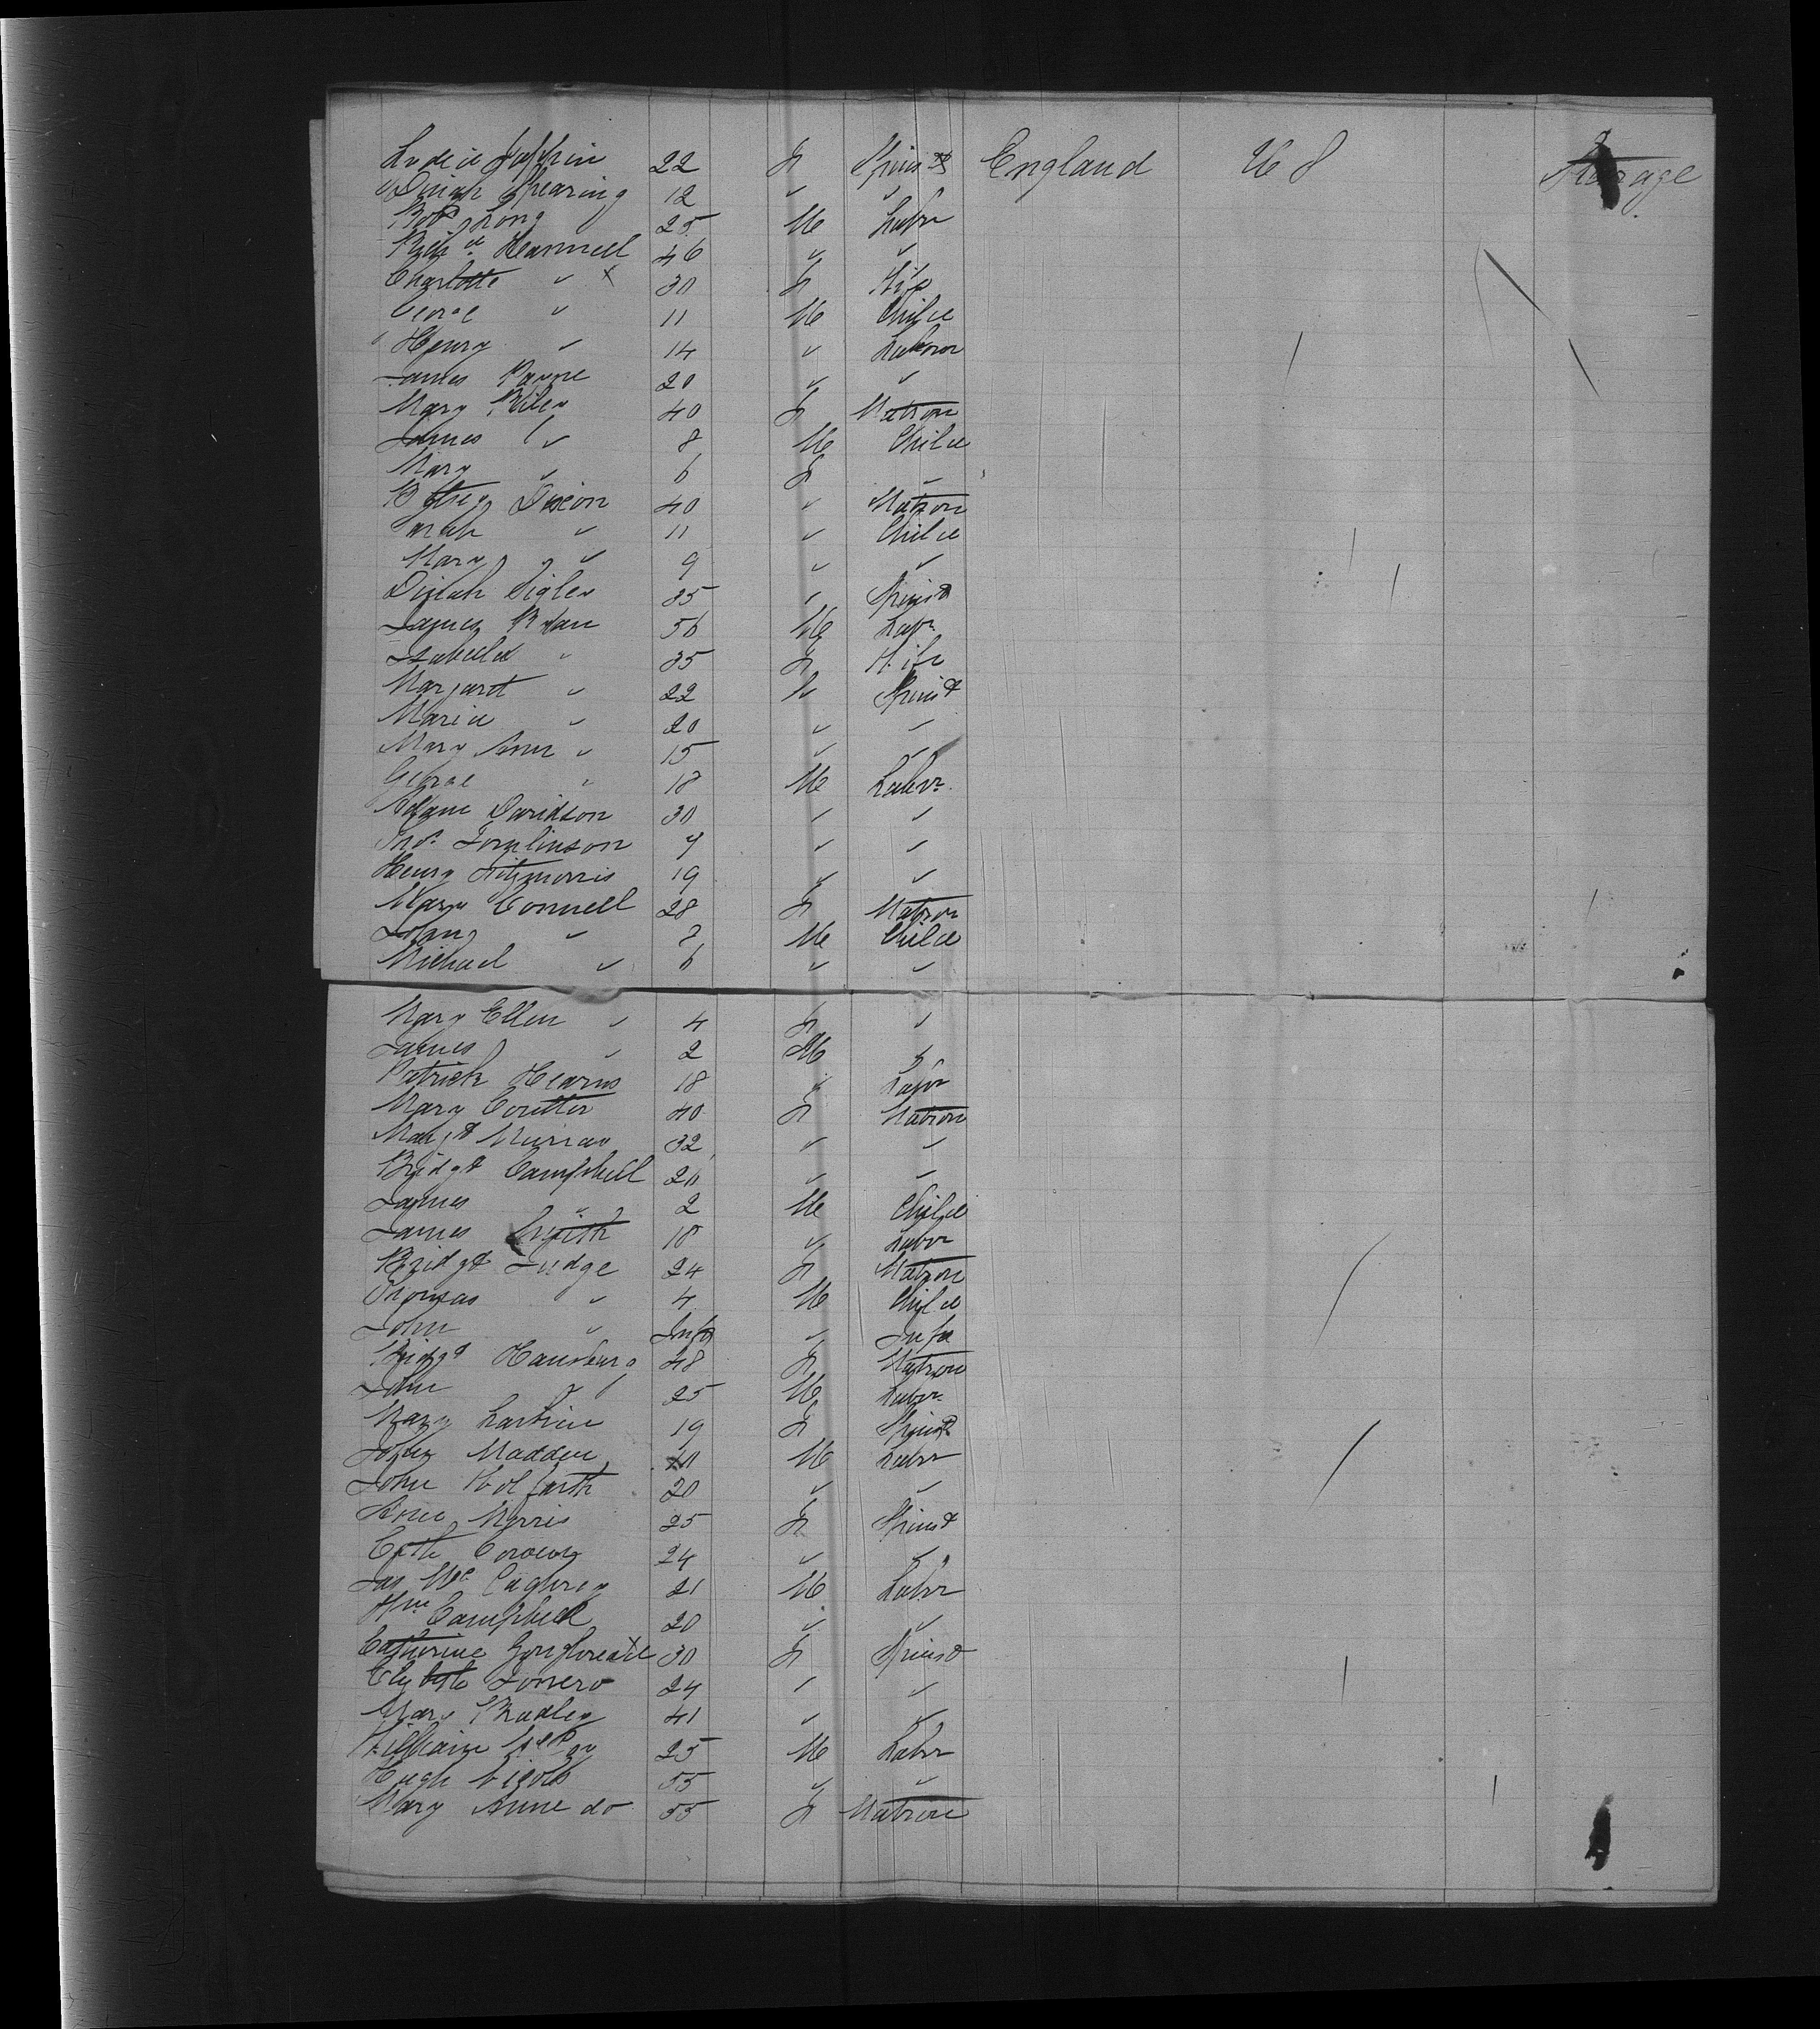 Lydia Joplin 22 F Spinst England U S Steerage
Dinah Shearing 12 " "
Robt Long 25 M Labr
Richd Hannell 46 " "
Charlotte " x 30 F Wife
George " 11 M Child
Henry " 14 " Labour
James Payne 20 " "
Mary Riley 40 F Matron
James " 8 M Child
Mary " 6 F "
Dixon 40 " Matron
Sarah " 11 " Child
Mary " 9 " "
Dinah Sigley 35 " Spinst
James Ryan 56 M Labr
Isabella " 35 F Wife
Margaret " 22 " Spinst
Maria " 20 " "
Mary Ann " 15 " "
George " 18 M Labr
Adam Davidson 30 " "
Tomlinson " "
Henry Fitzmorris 19 " "
Mary Connell 28 F Matron
Johny " M Child
Michael " 6 " "
Mary Ellen " 4 F "
James " 2 M "
Patrick Hearns 18 " Labr
Mary Coutter 40 F Matron
Margt Murray 32 " "
Bridgt Campbell 20 " "
James " 2 M Child
James Smith 18 " Labr
Bridgt Judge 24 F Matron
Thomas " 4 M Child
John " Inft " Infa
Bridgt 48 F Matron
John " 25 M Labr
Mary Larkin 19 F Spinst
John Madden M Labr
John 20 " "
Anne Morris 25 F Spinst
Cath 24 " "
Jas 21 M Labr
Wm Campbell 20 " "
Catherine 30 F Spinst
24 " "
Mary Bradley 41 " "
William 25 M Labr
Hugh 55 " "
Mary Anne do 55 F Matron